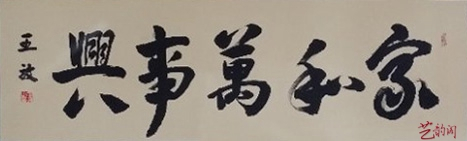 家和萬事興
王放
艺韵阁